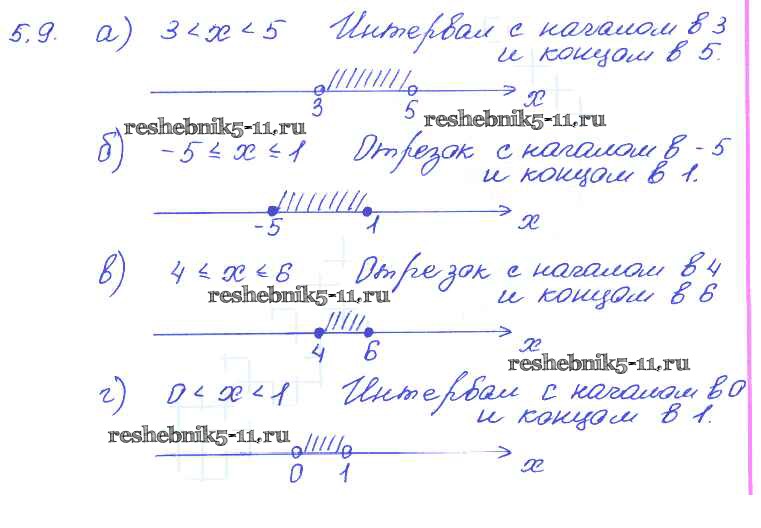 5.9. а) 3 < x < 5 Интервал с началом в 3
и концом в 5.
3 5 x
reshebnik5-11.ru reshebnik5-11.ru
б) -5 ≤ x ≤ 1 Отрезок с началом в -5
и концом в 1.
-5 1 x
в) 4 ≤ x ≤ 6 Отрезок с началом в 4
reshebnik5-11.ru и концом в 6
4 6 x
reshebnik5-11.ru
г) 0 < x < 1 Интервал с началом в 0
и концом в 1.
reshebnik5-11.ru
0 1 x